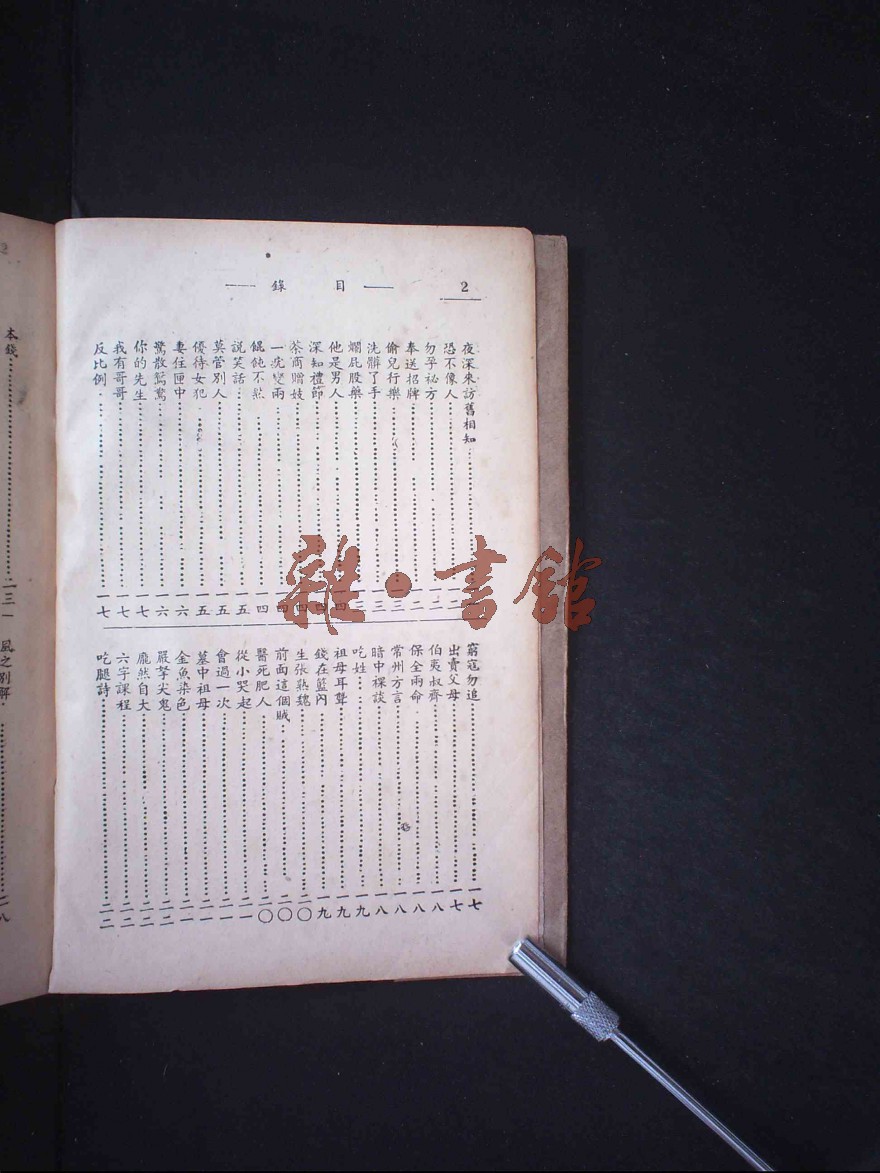 目錄
2
夜深來訪舊相知
恐不像人
勿孕祕方
奉送招牌
偷兒行樂……一三
洗髒了手……一三
爛屁股藥……一三
他是男人……一四
深知禮節……一四
茶商贈妓……一四
一沈變兩……一四
餛飩不熟……一四
說笑話……一五
莫管別人……一五
優待女犯……一五
妻住匣中……一六
驚散鴛鴦……一六
你的先生……一七
我有哥哥……一七
反比例……一七
窮寇勿追……一七
出賣父母……一七
伯夷叔齊……一八
保全兩命……一八
常州方言……一八
暗中裸談……一八
吃姓……一九
祖母耳聾……一九
錢在籃內……一九
生張熟魏……二〇
前面這個賊……二〇
醫死肥人……二〇
從小哭起……二一
會過一次……二一
墓中祖母……二一
金魚染色……二一
嚴拏尖鬼……二二
龐然自大……二二
六字課程……二二
吃腿詩……二二
本錢……二三
之別解……二八
雜·書館